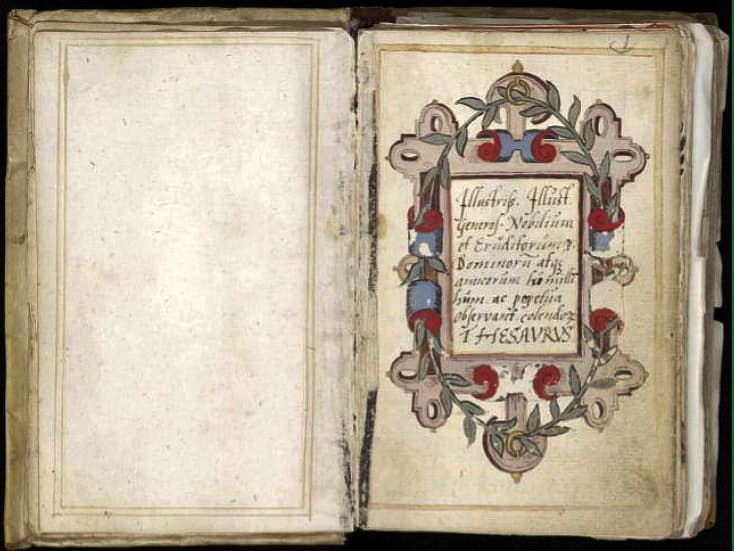 Illustriß. Illust.
Generos. Nobilium
et Eruditorum q.
Dominorū atq;
amicorum humilli
hum. ac perpetua
observant. colendoꝝ
THESAVRVS